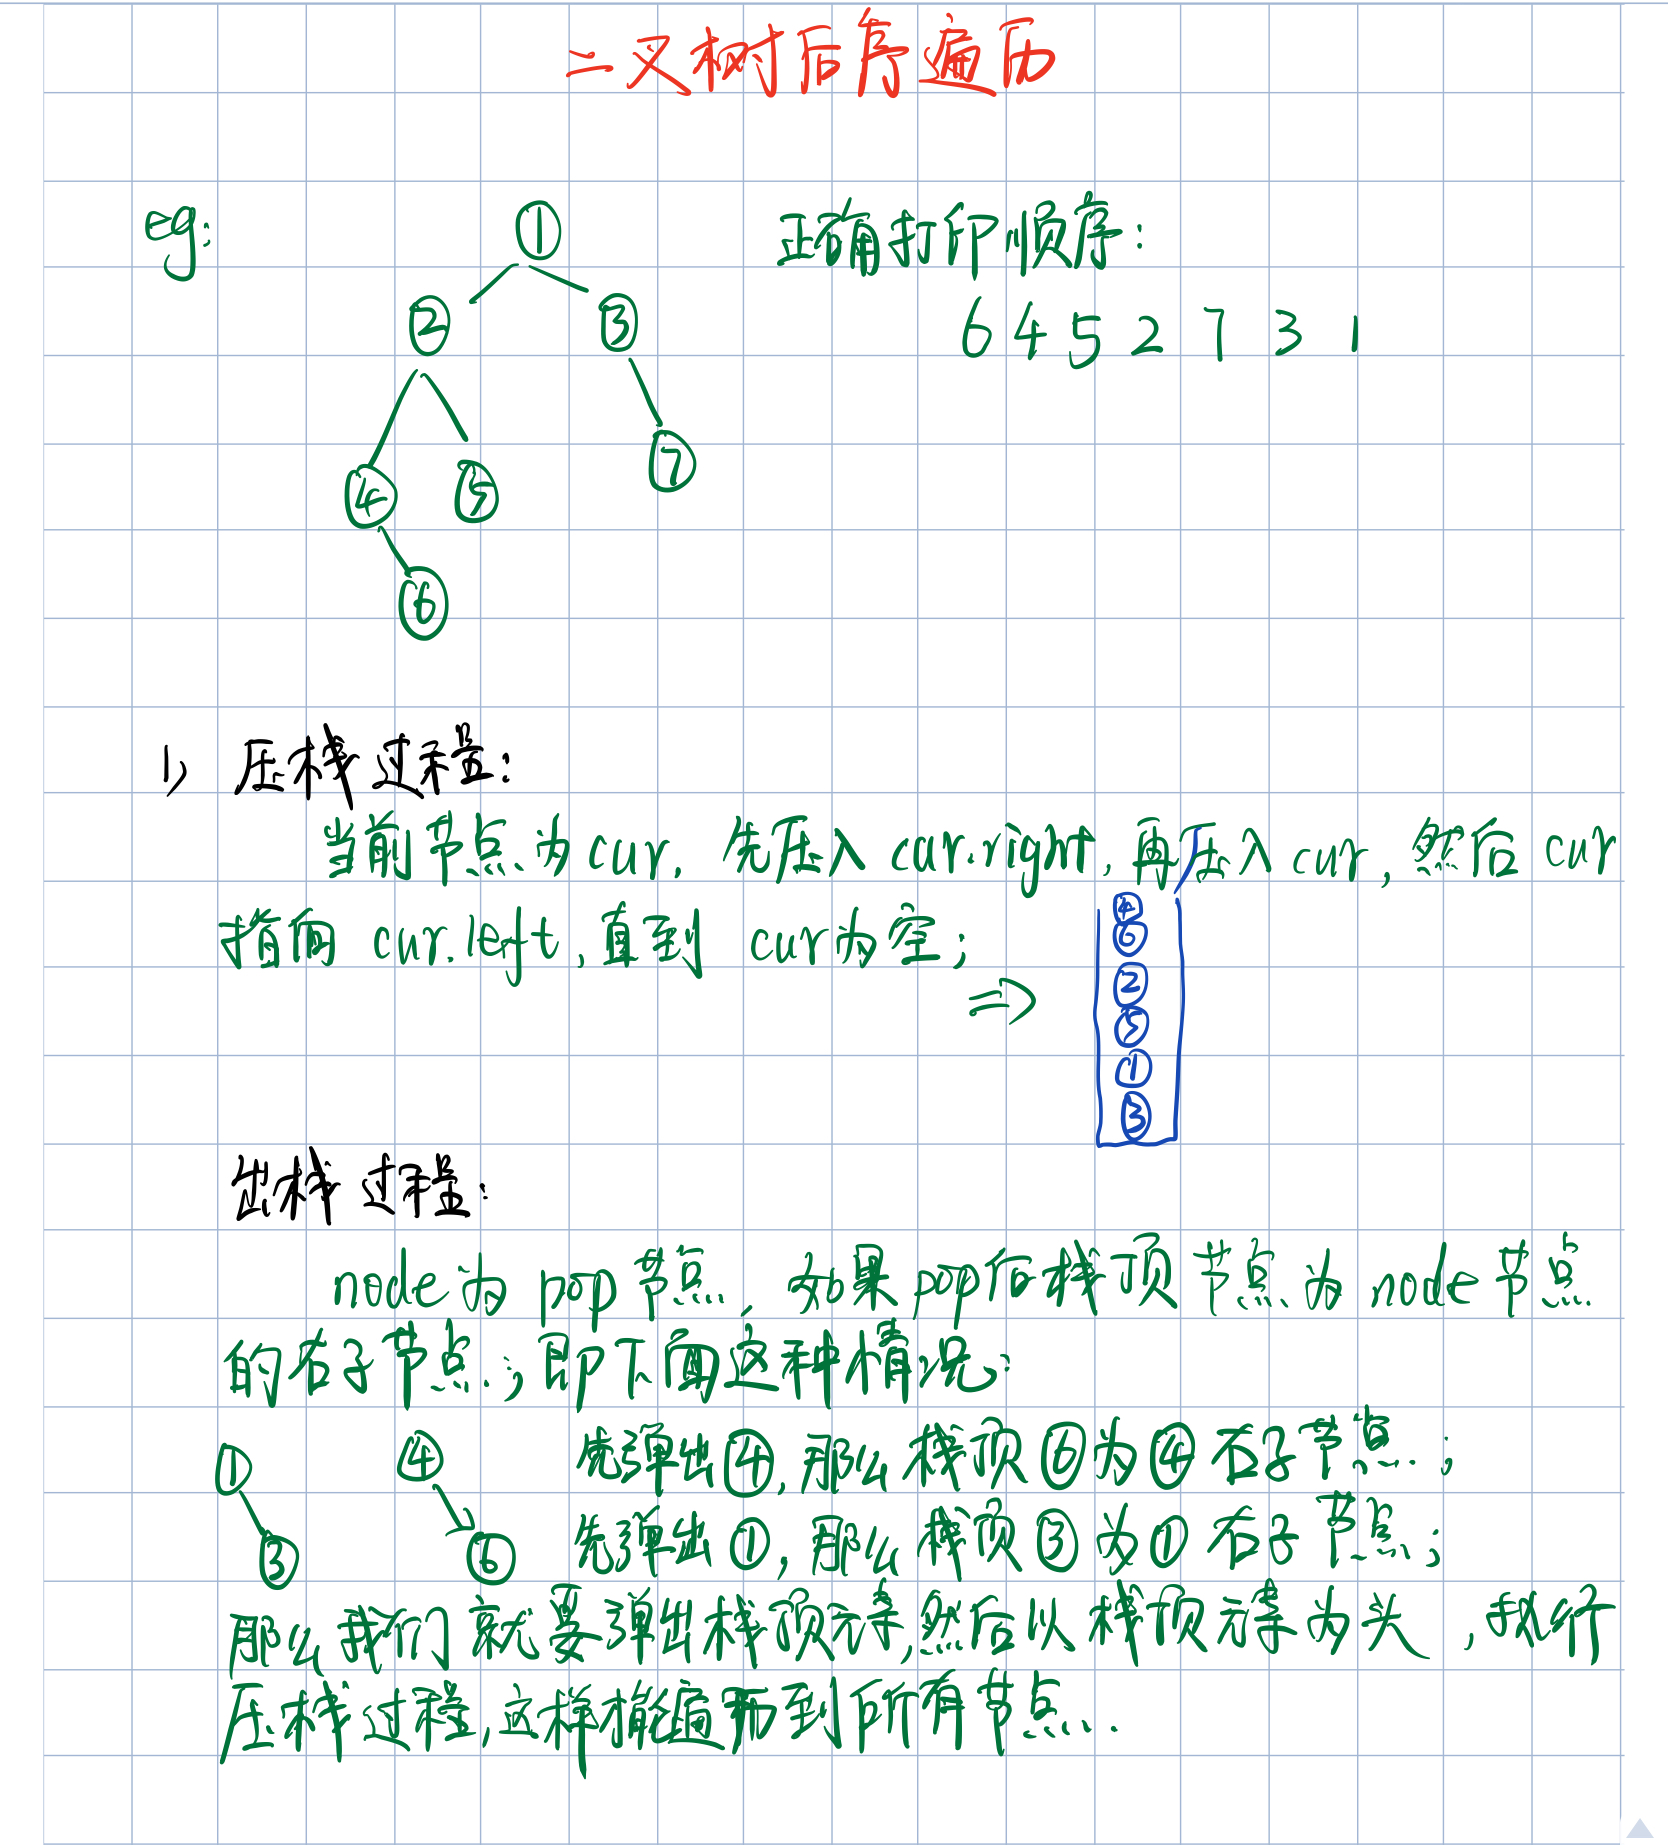 二叉树后序遍历
eg:
正确打印顺序:
①
② ③
6 4 5 2 7 3 1
④ ⑤ ⑦
⑥
1) 压栈过程:
当前节点为cur, 先压入cur.right, 再压入cur, 然后cur
指向 cur.left, 直到 cur为空;
⇒
④
⑥
②
⑤
①
③
出栈过程:
node为pop节点, 如果pop后栈顶节点为node节点
的右子节点; 即下面这种情况:
① ④ 先弹出④, 那么栈顶⑥为④右子节点;
③ ⑥ 先弹出①, 那么栈顶③为①右子节点;
那么我们就要弹出栈顶元素, 然后以栈顶元素为头, 执行
压栈过程, 这样才能遍历到所有节点.